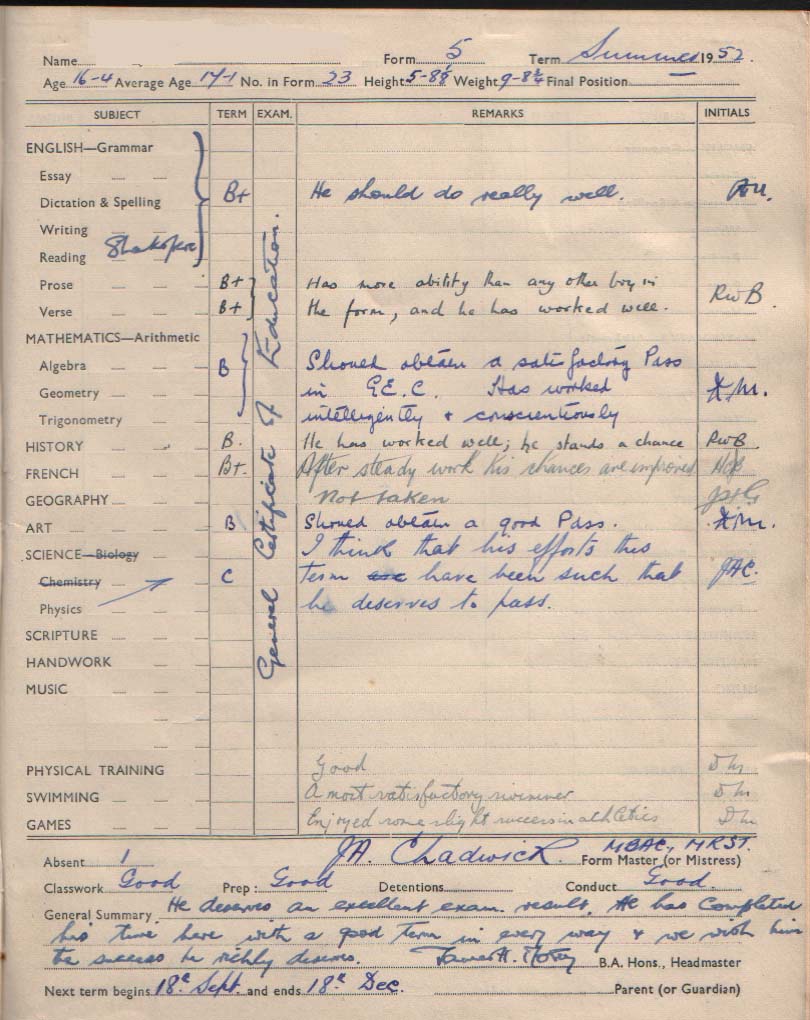 Name Form 5 Term Summer 1952.
Age 16-4 Average Age 17-1 No. in Form 23 Height 5-8 Weight 9-8¾ Final Position
SUBJECT TERM EXAM. REMARKS INITIALS
ENGLISH—Grammar
Essay
Dictation & Spelling B+ He should do really well.
Writing
Reading Shakespeare
Prose B+ Has more ability than any other boy in
Verse B+ the form, and he has worked well. RWB.
General Certificate of Education.
MATHEMATICS—Arithmetic
Algebra B Should obtain a satisfactory Pass
Geometry in G.E.C. Has worked
Trigonometry intelligently & conscientiously
HISTORY B. He has worked well; he stands a chance RWB
FRENCH B+. After steady work his chances are improved
GEOGRAPHY Not taken
ART B Should obtain a good Pass.
SCIENCE—Biology I think that his efforts this
Chemistry C term have been such that JAC.
Physics he deserves to pass.
SCRIPTURE
HANDWORK
MUSIC
PHYSICAL TRAINING Good
SWIMMING A most satisfactory swimmer
GAMES Enjoyed some slight success in athletics
Absent 1 J.A. Chadwick. MBAC, MRST. Form Master (or Mistress)
Classwork Good Prep: Good Detentions Conduct Good.
General Summary He deserves an excellent exam. result. He has completed
his time here with a good term in every way & we wish him
the success he richly deserves. B.A. Hons., Headmaster
Next term begins 18th Sept. and ends 18th Dec. Parent (or Guardian)